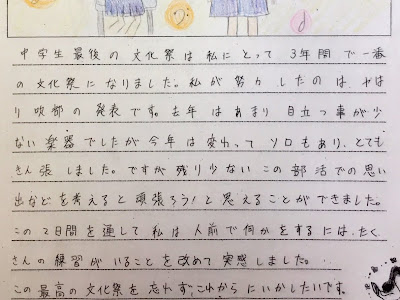 中学生最後の文化祭は私にとって3年間で一番
の文化祭になりました。私が努力したのは、やは
り吹部の発表です。去年はあまり目立つ事が少
ない楽器でしたが今年は変わってソロもあり、とても
きん張しました。ですが残り少ないこの部活での思い
出などを考えると頑張ろう!と思えることができました。
この2日間を通して私は人前で何かをするには、たく
さんの練習がいることを改めて実感しました。
この最高の文化祭を忘れず、これからにいかしたいです。